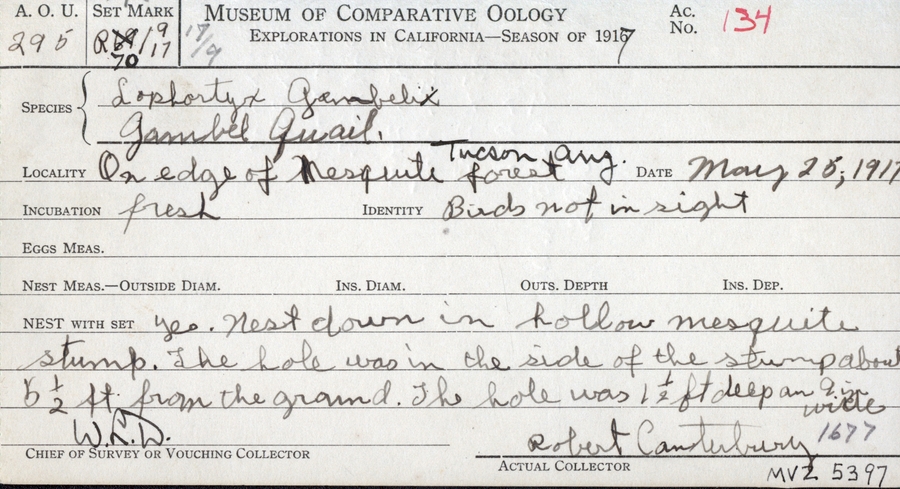 A. O. U. SET MARK MUSEUM OF COMPARATIVE OOLOGY Ac. No. 134
295 R 70 /9/17 17/9 EXPLORATIONS IN CALIFORNIA—SEASON OF 1917
SPECIES { Lophortyx Gambelii
Gambel Quail.
Tucson
LOCALITY On edge of Mesquite forest DATE May 25, 1917
INCUBATION fresh IDENTITY Birds not in sight
EGGS MEAS.
NEST MEAS.—OUTSIDE DIAM. INS. DIAM. OUTS. DEPTH INS. DEP.
NEST WITH SET yes. Nest down in hollow mesquite
stump. The hole was in the side of the stump about
5 1/2 ft. from the ground. The hole was 1 1/2 ft deep an 9 in
wide
W.L.D. Robert Canterbury 1677
CHIEF OF SURVEY OR VOUCHING COLLECTOR ACTUAL COLLECTOR
MVZ 5397